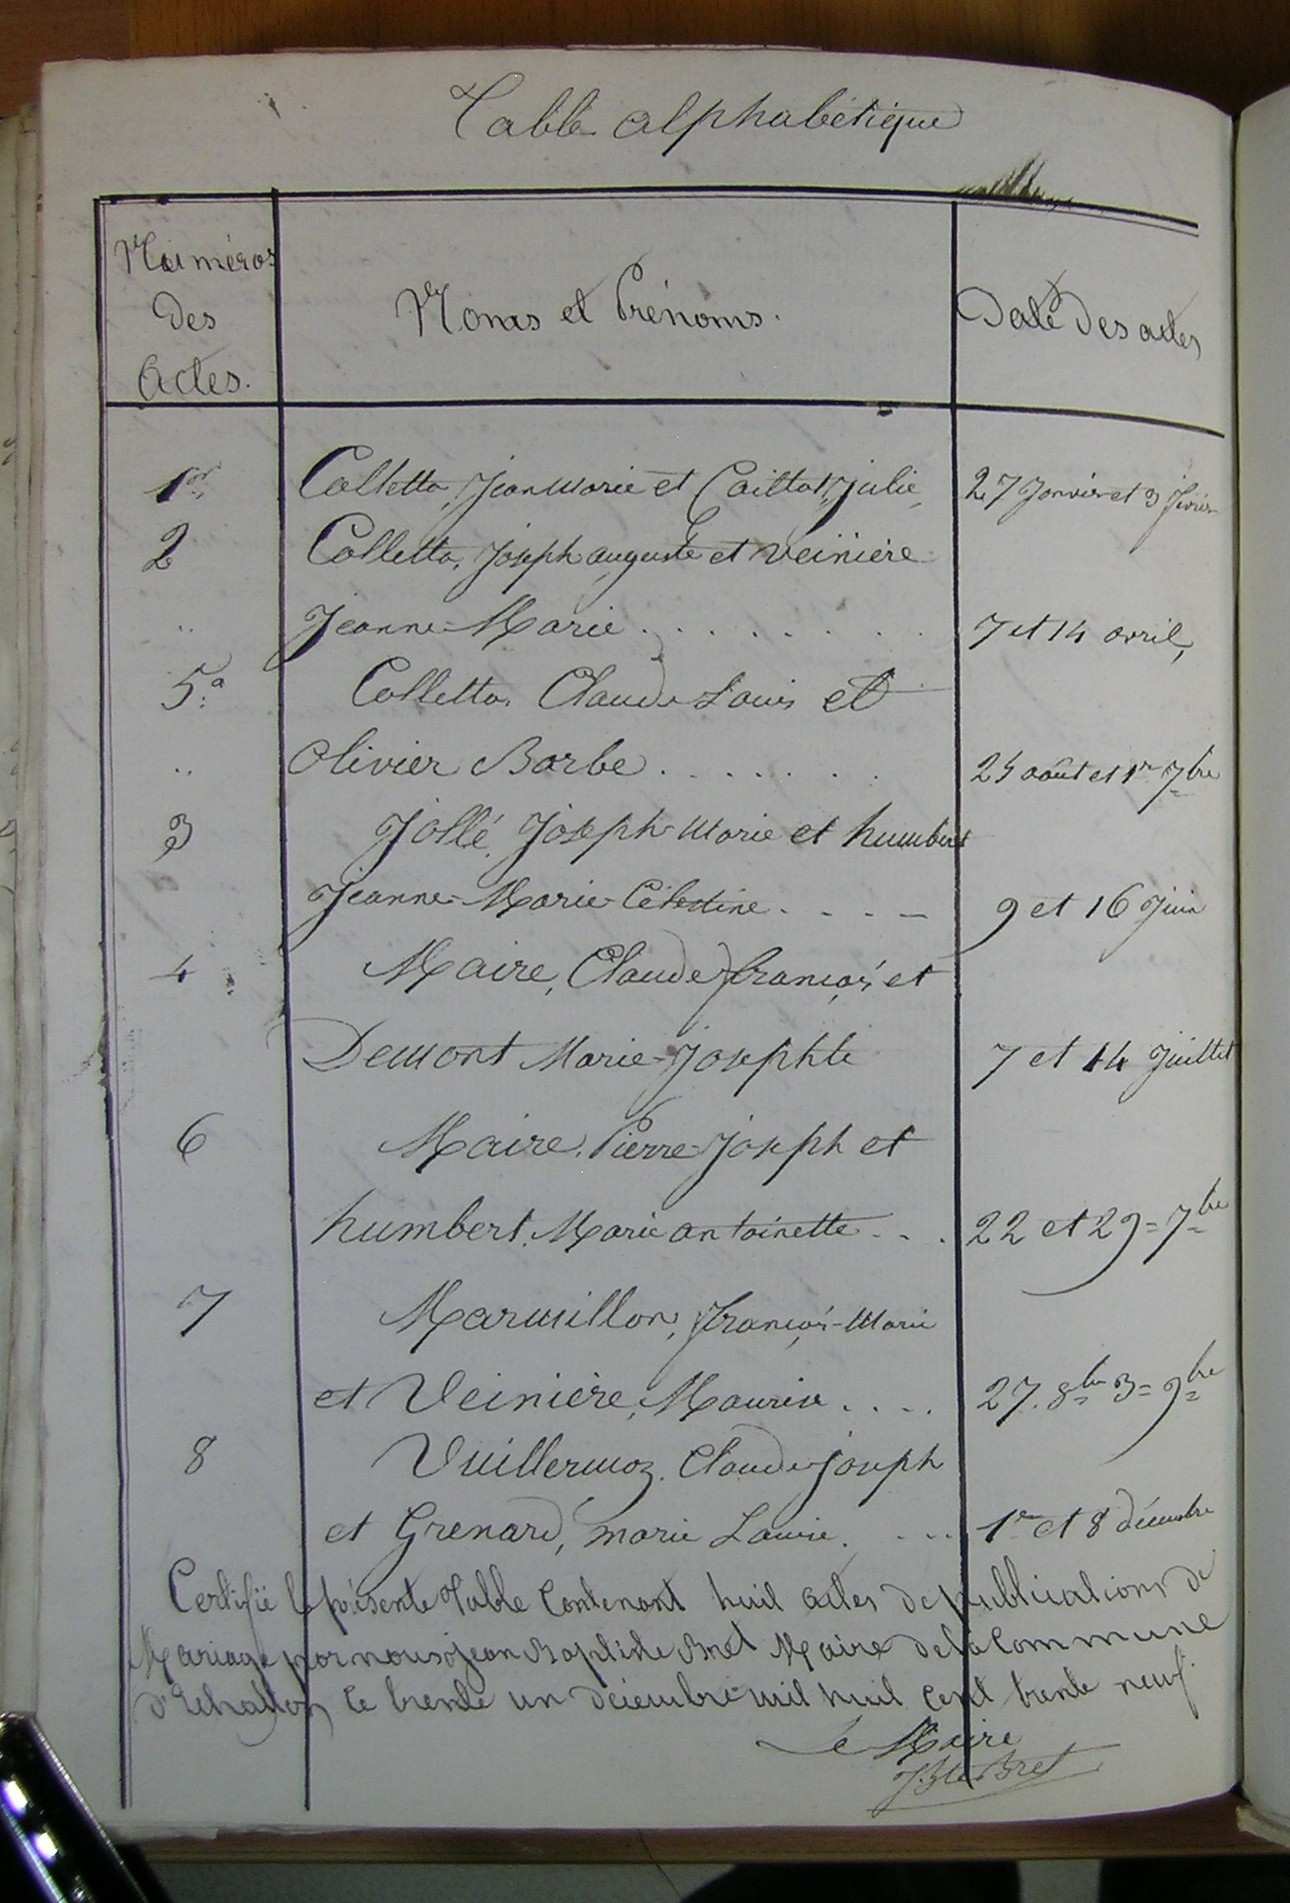 Table alphabétique
Numéros des Actes.
Noms et Prénoms.
Date des actes
1er Colletta, Jean Marie et Caillat, Julie, 27 Janvier et 3 févrie
2 Colletta, Joseph auguste et Veinière
.. Jeanne-Marie . . . . . . . . 7 et 14 avril,
5.a Colletta, Claude Louis et
.. Olivier Barbe . . . . . . . 25 août et 1er 7bre
3 Jollé, Joseph-Marie et humbert
Jeanne-Marie-Célestine . . . . 9 et 16 Juin
4 Maire, Claude françois et
Demont Marie-Josephte 7 et 14 Juillet
6 Maire, Pierre-Joseph et
humbert, Marie antoinette . . . 22 et 29 = 7bre
7 Marmillon, françois-Marie
et Veinière, Maurise . . . . 27. 8bre 3 = 9bre
8 Vuillermoz, Claude-Joseph
et Grenard, marie Laurie. . . . 1er et 8 décembre
Certifié le présente Table Contenant huit actes de publications de
Mariage par nous jean Baptiste Bret Maire de la Commune
d'Echallon le trente un décembre mil huit cent trente neuf.
Le Maire
JBte Bret